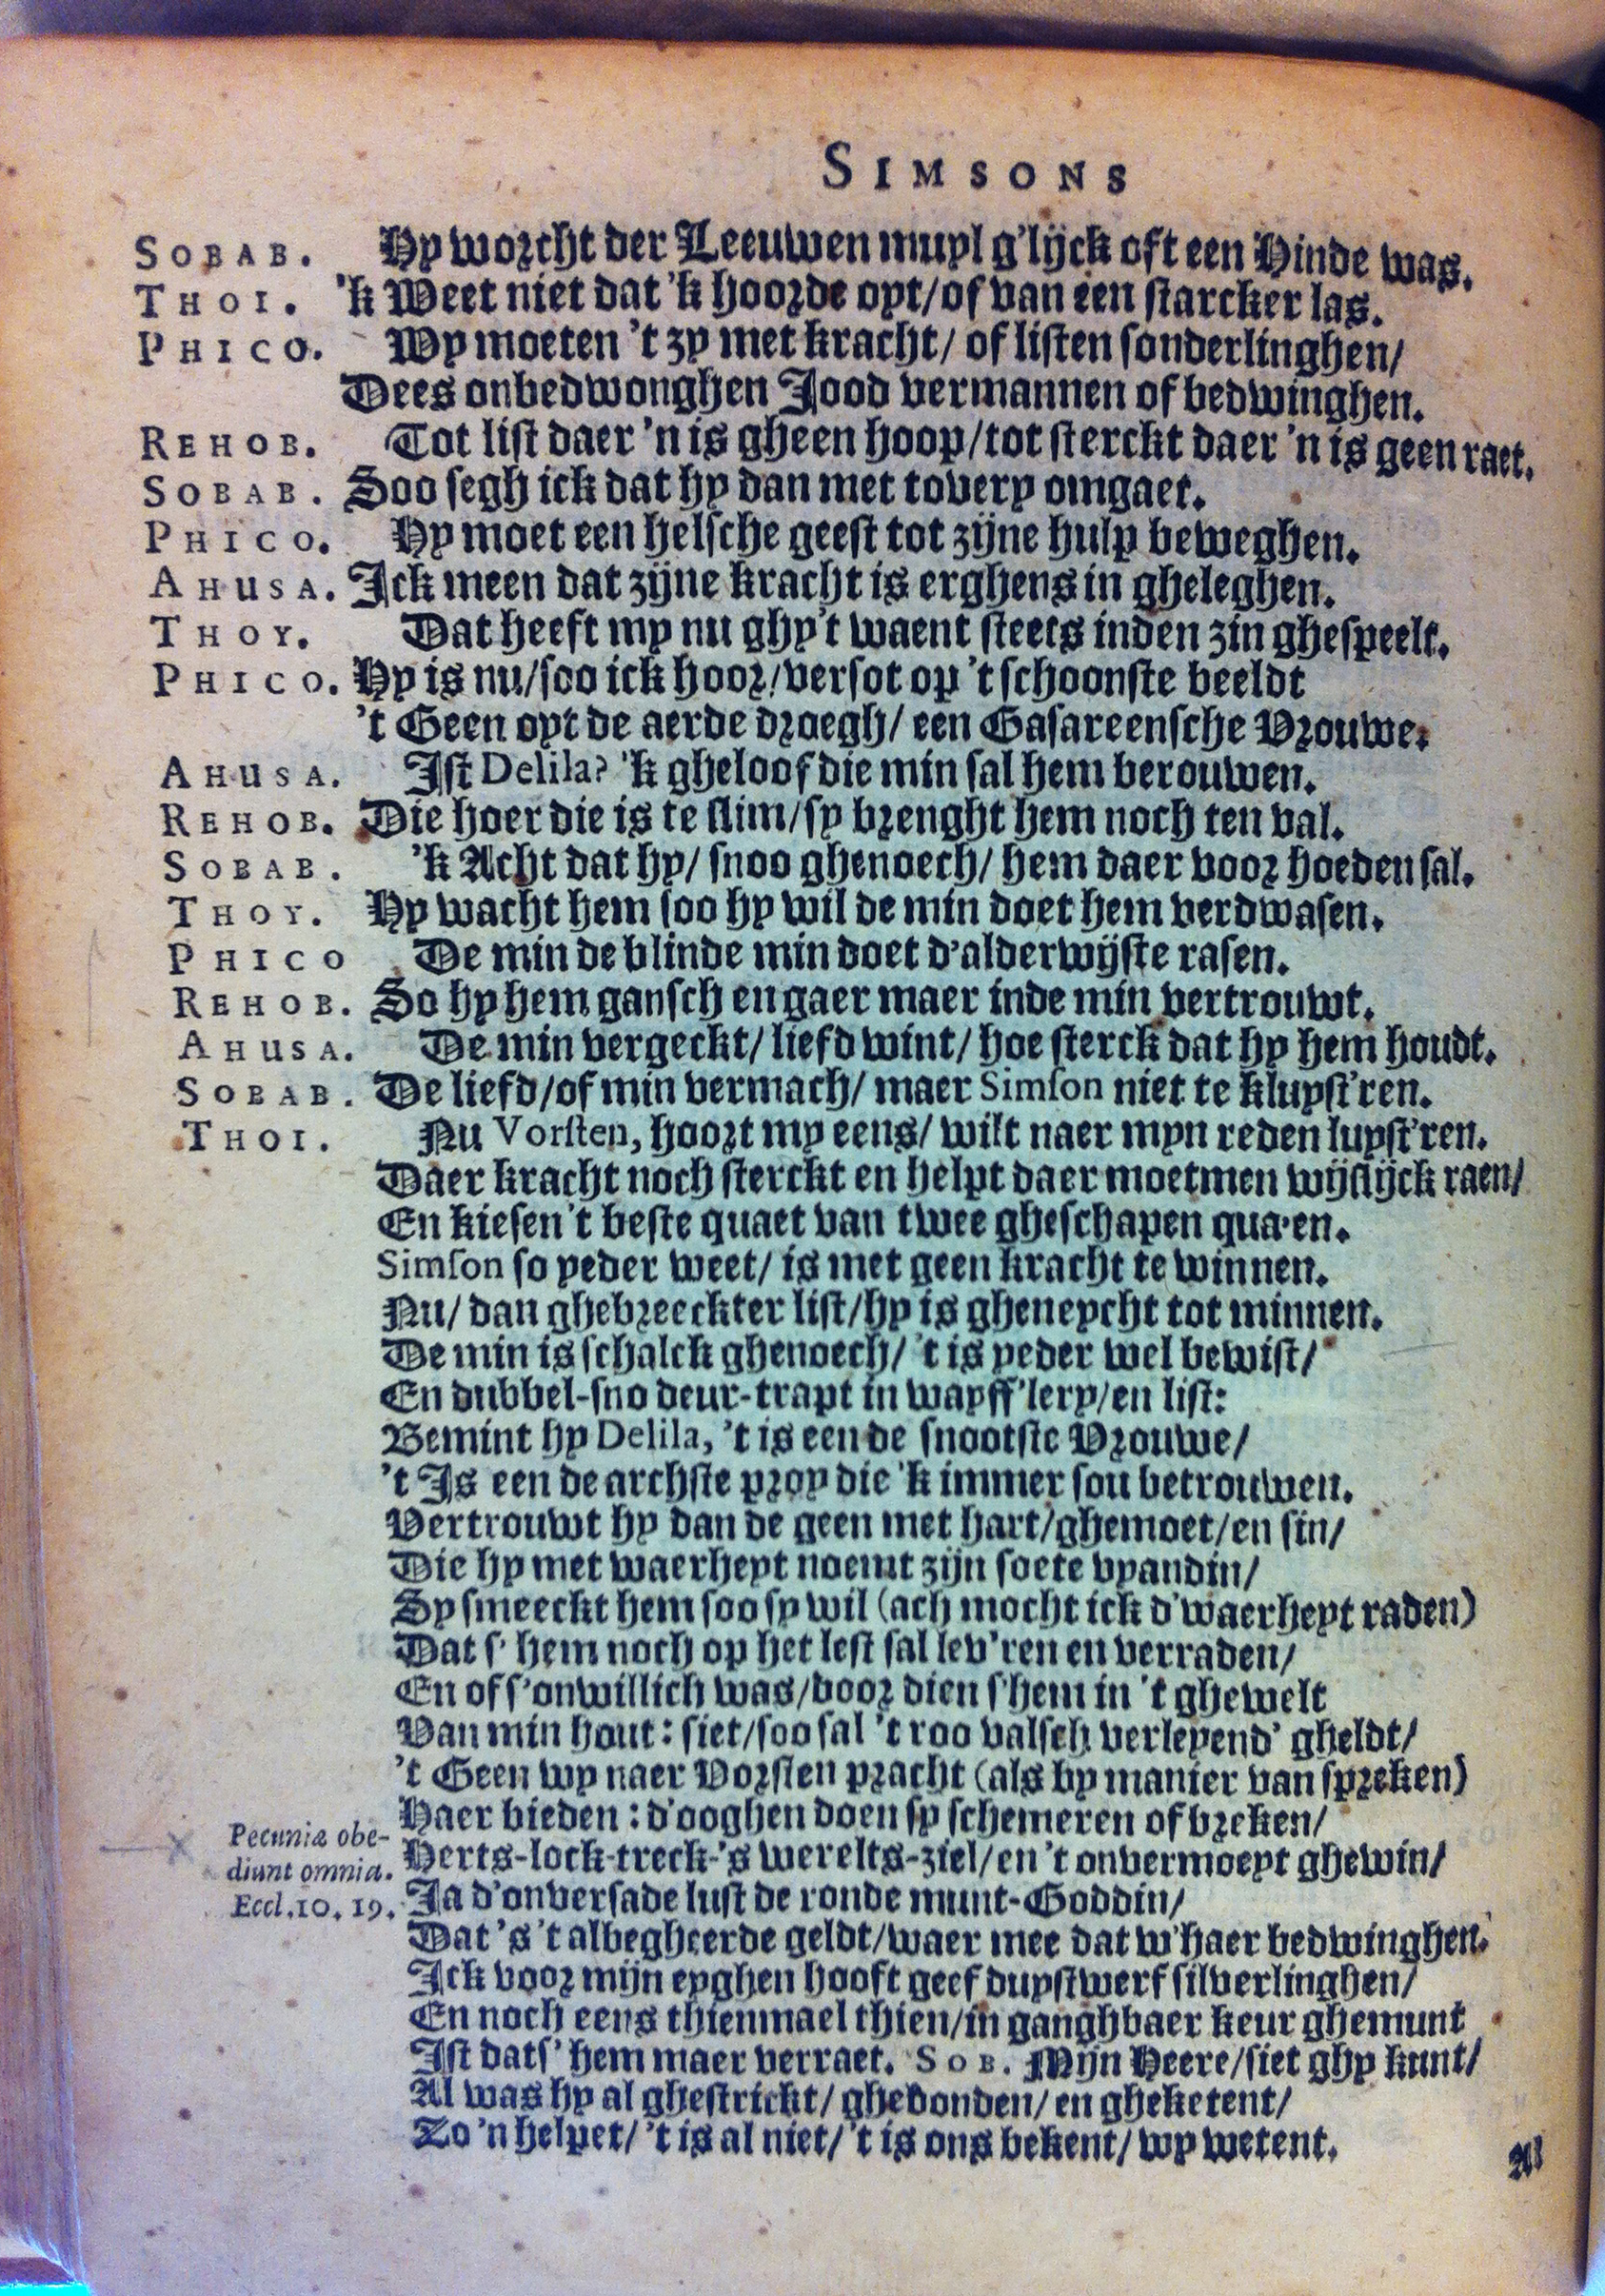 SIMSONS
SOBAB. Hy worcht der Leeuwen muyl g'lijck oft een Hinde was.
THOI. 'k Weet niet dat 'k hoorde oyt/of van een starcker las.
PHICO. Wy moeten 't zy met kracht/ of listen sonderlinghen/
Dees onbedwonghen Jood vermannen of bedwinghen.
REHOB. Tot list daer 'n is gheen hoop/tot sterckt daer 'n is geen raet.
SOBAB. Soo segh ick dat hy dan met tovery omgaet.
PHICO. Hy moet een helsche geest tot zijne hulp beweghen.
AHUSA. Ick meen dat zijne kracht is erghens in gheleghen.
THOY. Dat heeft my nu ghy't waent steets inden zin ghespeelt.
PHICO. Hy is nu/soo ick hoor/versot op 't schoonste beeldt
't Geen oyt de aerde droegh/ een Gasareensche Vrouwe.
AHUSA. Ist Delila? 'k gheloof die min sal hem berouwen.
REHOB. Die hoer die is te slim/sy brenght hem noch ten val.
SOBAB. 'k Acht dat hy/ snoo ghenoech/ hem daer voor hoeden sal.
THOY. Hy wacht hem soo hy wil de min doet hem verdwasen.
PHICO De min de blinde min doet d'alderwijste rasen.
REHOB. So hy hem gansch en gaer maer inde min vertrouwt.
AHUSA. De min vergeckt/ liefd wint/ hoe sterck dat hy hem houdt.
SOBAB. De liefd/of min vermach/ maer Simson niet te kluyst'ren.
THOI. Nu Vorsten, hoort my eens/ wilt naer myn reden luyst'ren.
Daer kracht noch sterckt en helpt daer moetmen wijslijck raen/
En kiesen 't beste quaet van twee gheschapen qua'en.
Simson so yeder weet/ is met geen kracht te winnen.
Nu/ dan ghebreeckter list/hy is gheneycht tot minnen.
De min is schalck ghenoech/ 't is yeder wel bewist/
En dubbel-sno deur-trapt in wayff'lery/en list:
Bemint hy Delila, 't is een de snootste Vrouwe/
't Is een de archste proy die 'k immer sou betrouwen.
Vertrouwt hy dan de geen met hart/ghemoet/en sin/
Die hy met waerheyt noemt zijn soete vyandin/
Sy smeeckt hem soo sy wil (ach mocht ick d'waerheyt raden)
Dat s' hem noch op het lest sal lev'ren en verraden/
En of s'onwillich was/door dien s'hem in 't ghewelt
Van min hout: siet/soo sal 't roo valsch verleyend' gheldt/
't Geen wy naer Vorsten pracht (als by manier van spreken)
Haer bieden: d'ooghen doen sy schemeren of breken/
Herts-lock-treck-'s werelts-ziel/en 't onvermoeyt ghewin/
Pecuniæ obe-
diunt omnia.
Eccl.10. 19.
Ja d'onversade lust de ronde munt-Goddin/
Dat 's 't albegheerde geldt/waer mee dat w'haer bedwinghen.
Ick voor mijn eyghen hooft geef duystwerf silverlinghen/
En noch eens thienmael thien/in ganghbaer keur ghemunt
Ist dats' hem maer verraet. SOB. Mijn Heere/siet ghy kunt/
Al was hy al ghestrickt/ ghebonden/ en gheketent/
Zo 'n helpet/ 't is al niet/ 't is ons bekent/ wy wetent.
Al